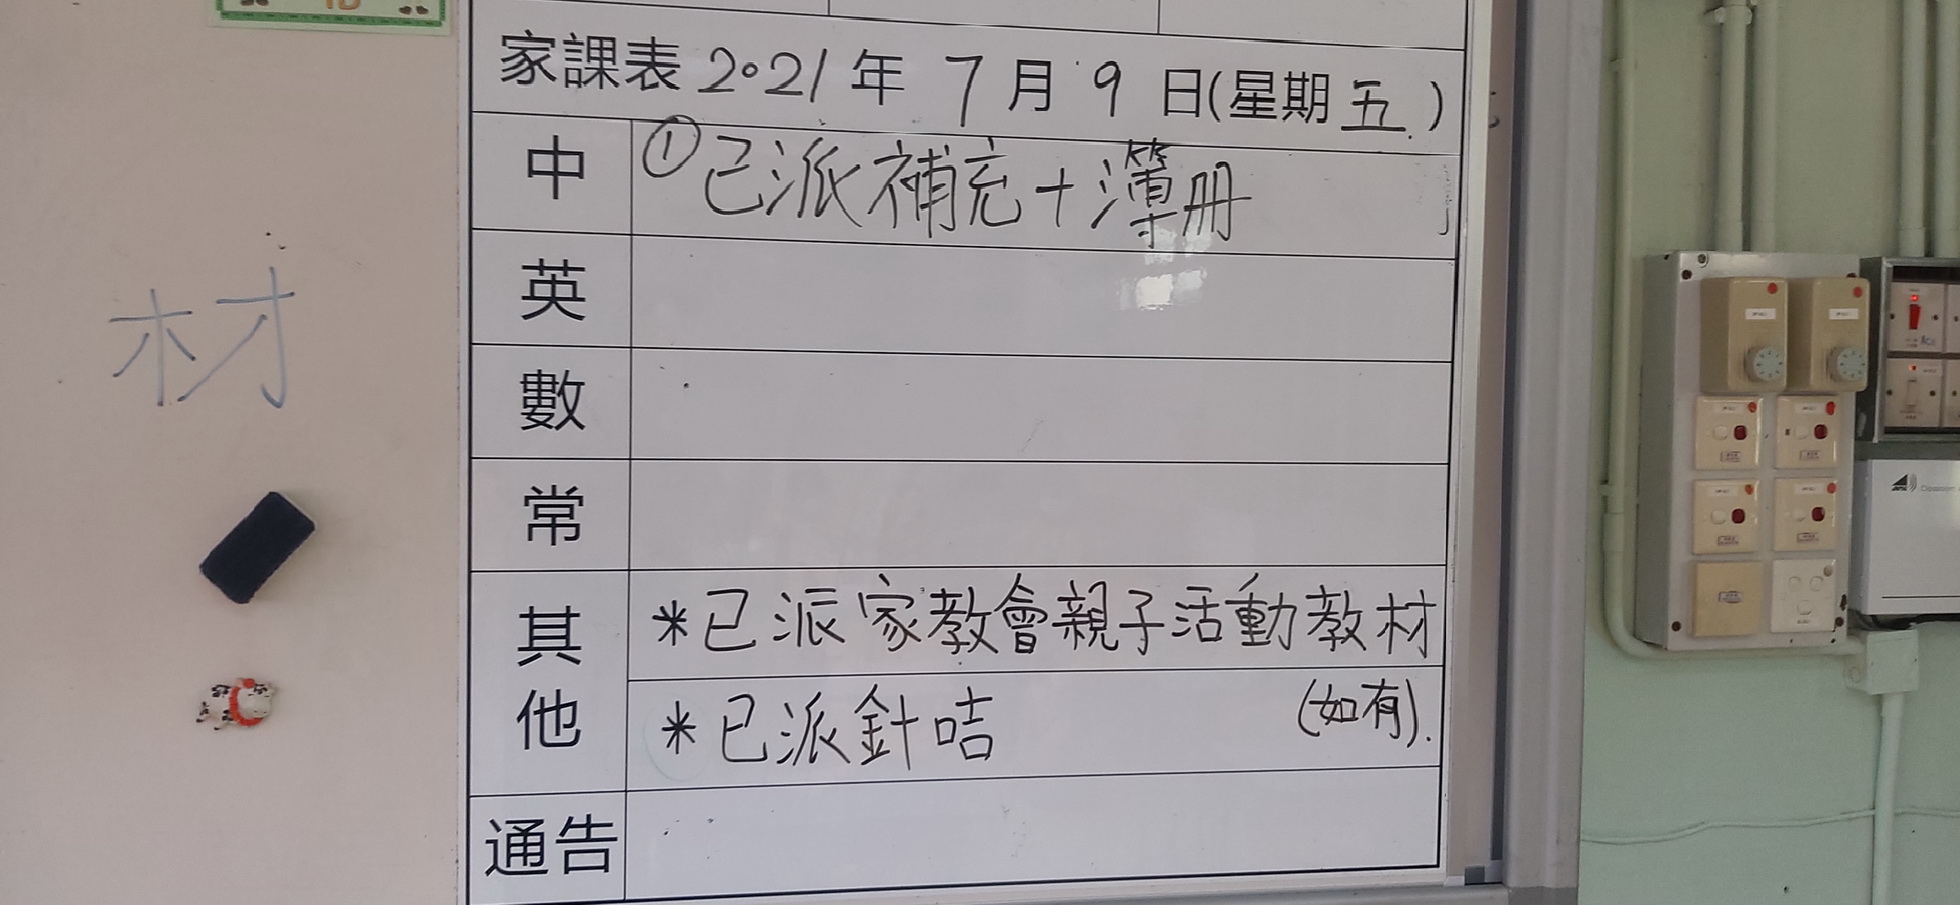 1D
家課表 2021年 7月 9日(星期五.)
中 ①已派補充+簿冊
英
數
常
其他 *已派家教會親子活動教材
(如有).
*已派針咭
通告
材